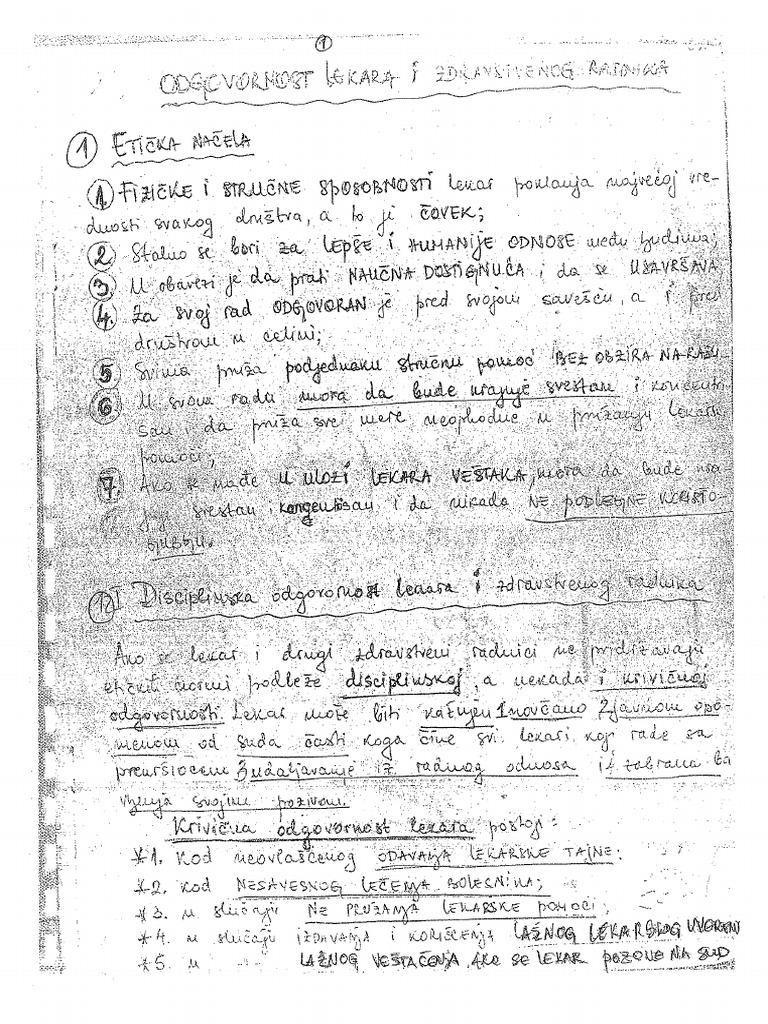 1
ODGOVORNOST LEKARA I ZDRAVSTVENOG RADNIKA
1 ETIČKA NAČELA
1. FIZIČKE I STRUČNE SPOSOBNOSTI lekar poklanja najvećoj vre-
dnosti svakog društva, a to je ČOVEK;
2 Stalno se bori za LEPŠE I HUMANIJE ODNOSE među ljudima;
3 U obavezi je da prati NAUČNA DOSTIGNUĆA i da se USAVRŠAVA
4. Za svoj rad ODGOVORAN je pred svojom savešću, a i pred
društvom u celini;
5 Svima pruža podjednaku stručnu pomoć BEZ OBZIRA NA RASU
6 U svom radu mora da bude krajnje svestan i koncentri
san i da pruža sve mere neophodne u pružanju lekarske
pomoći;
7. Ako se nađe U ULOZI LEKARA VEŠTAKA, mora da bude kra
jnje svestan i da nikada NE PODLEGNE KORISTO-
ljublju.
Disciplinska odgovornost lekara i zdravstvenog radnika
Ako se lekar i drugi zdravstveni radnici ne pridržavaju
etičkih normi podleže disciplinskoj, a nekada i krivičnoj
odgovornosti. Lekar može biti kažnjen 1 novčano 2 javnom opo-
menom od suda časti koga čine svi lekari koji rade sa
3 udaljavanje iz radnog odnosa i 4 zabrana ba
vljenja svojim pozivom.
Krivična odgovornost lekara postoji:
*1. Kod neovlašćenog ODAVANJA LEKARSKE TAJNE:
*2. Kod NESAVESNOG LEČENJA BOLESNIKA;
*3. u slučaju NE PRUŽANJA LEKARSKE POMOĆI;
*4. u slučaju IZDAVANJA I KORIŠĆENJA LAŽNOG LEKARSKOG UVERENJ
*5. u -"- LAŽNOG VEŠTAČENJA AKO SE LEKAR POZOVE NA SUD